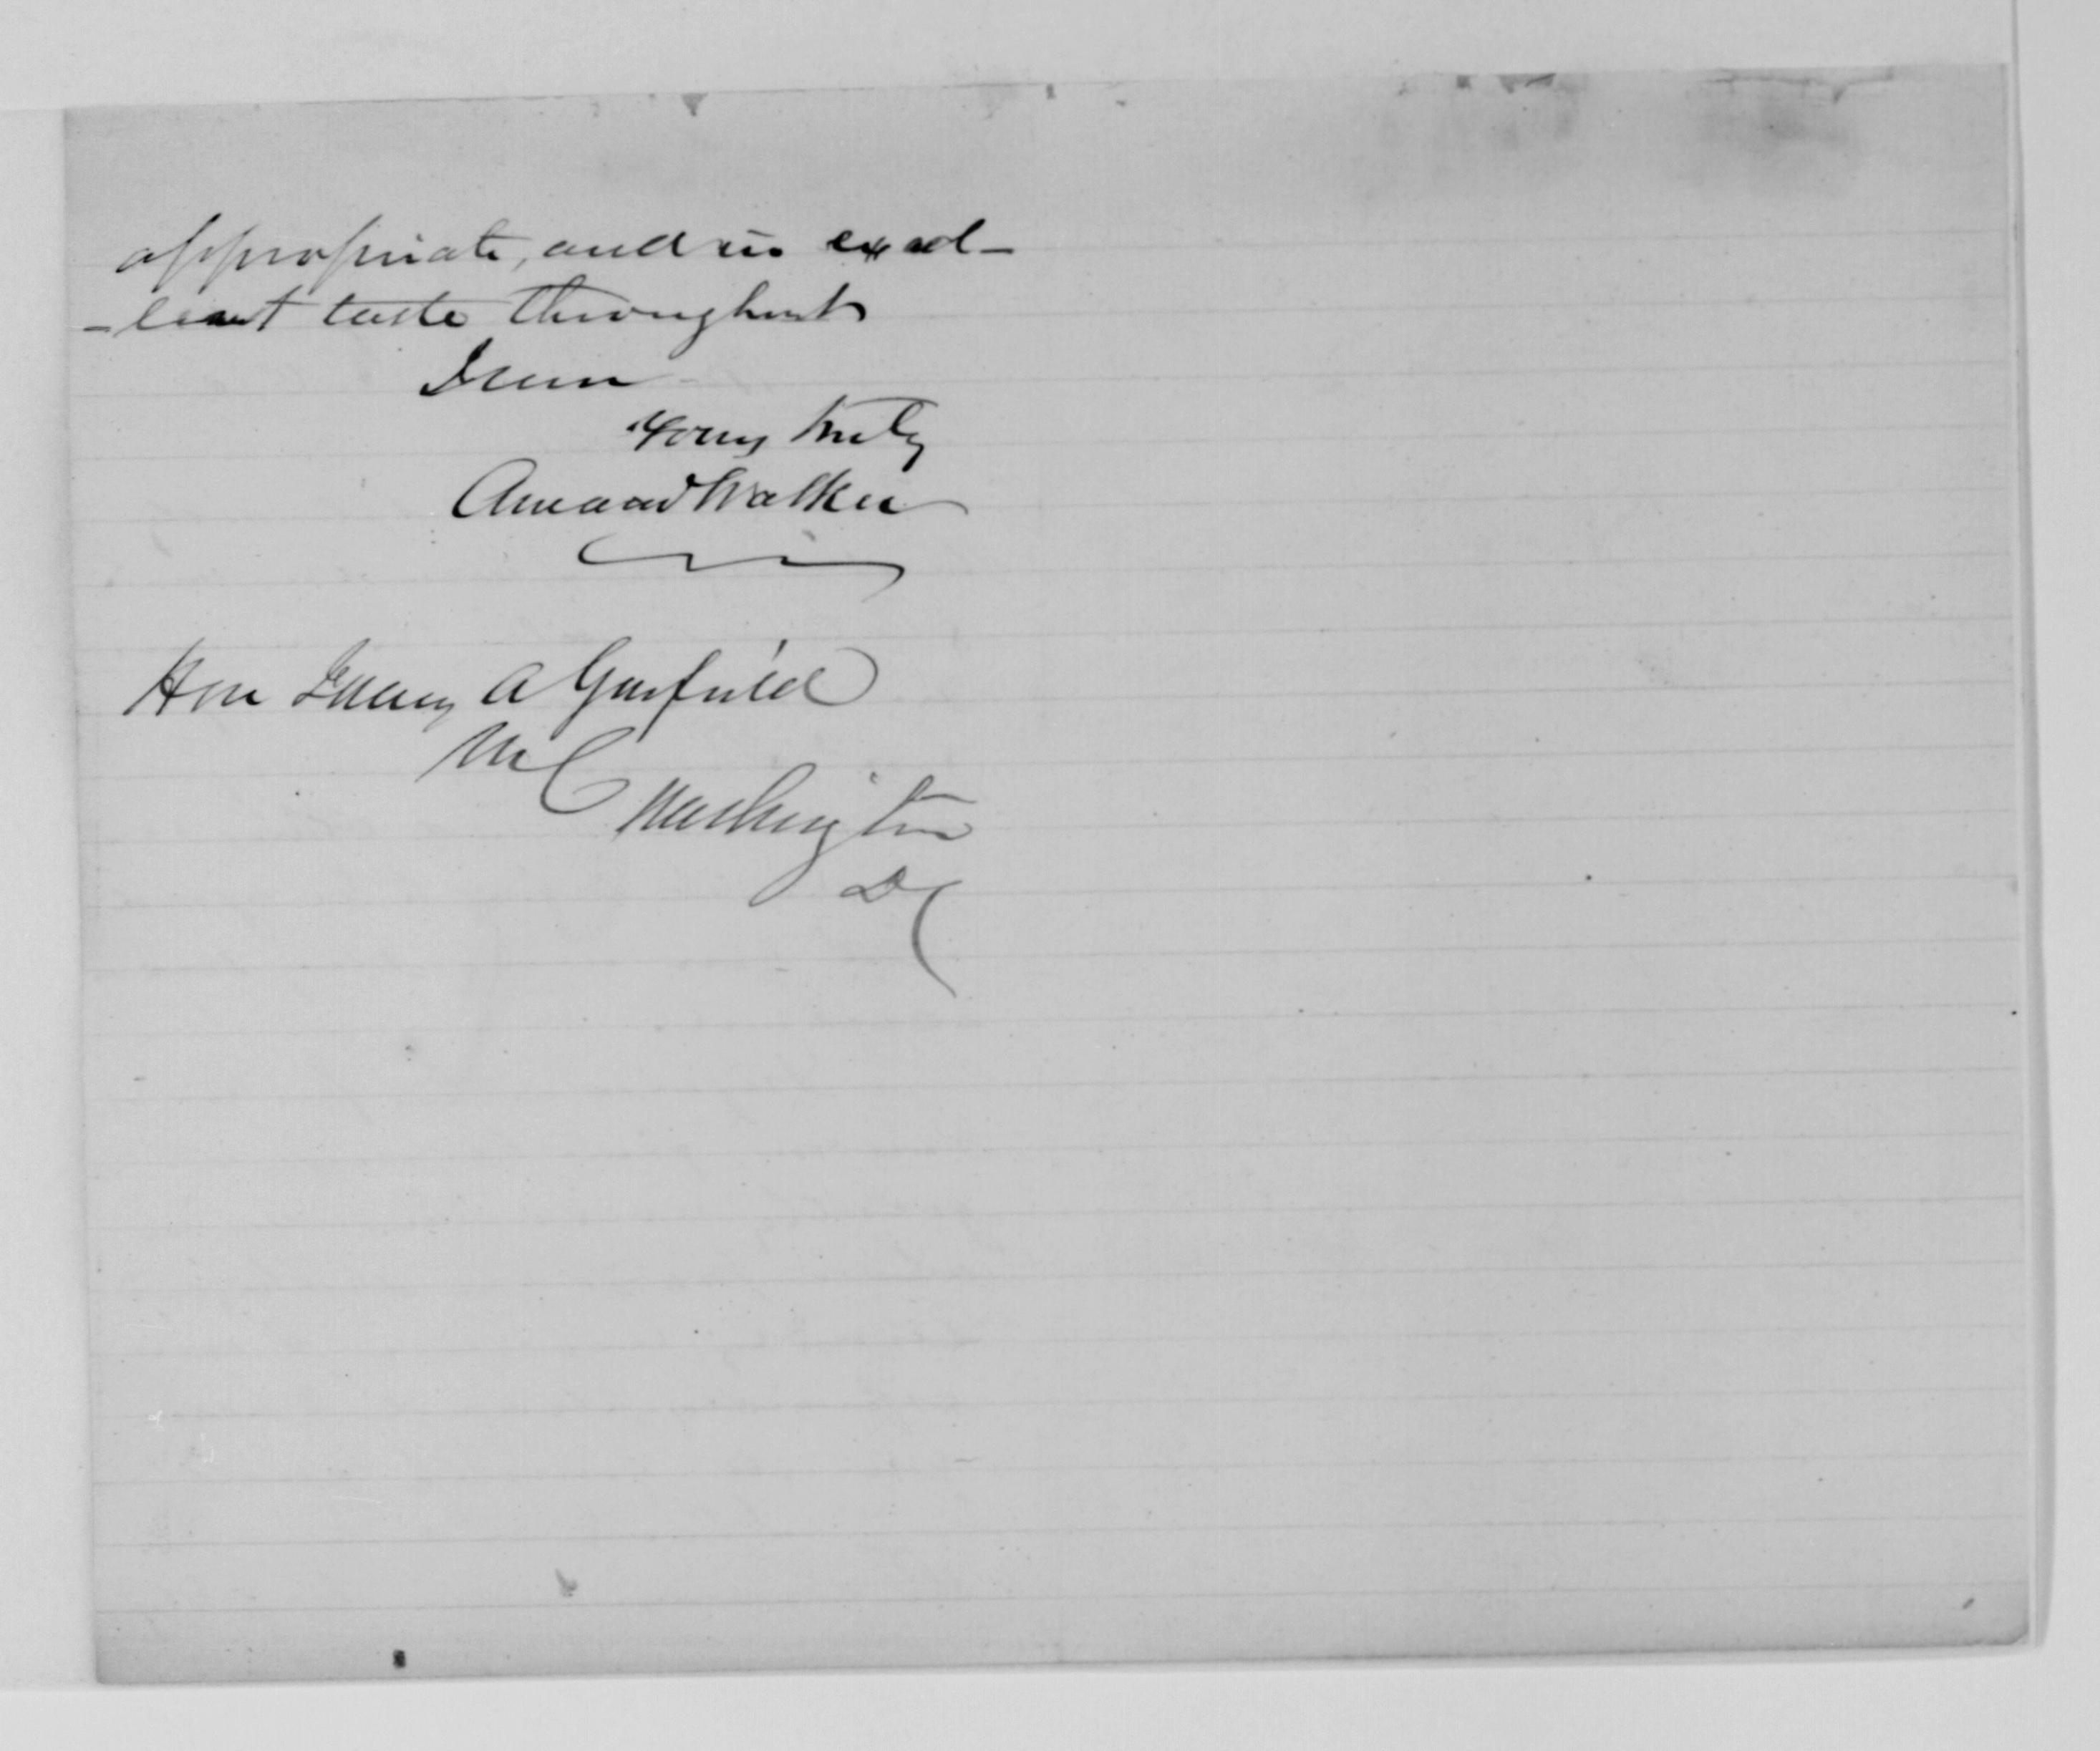 appropriate, and in excel-
-lent taste throughout
I am
Yours truly
Amasa Walker
Hon James A Garfield
M C
Washington
D C